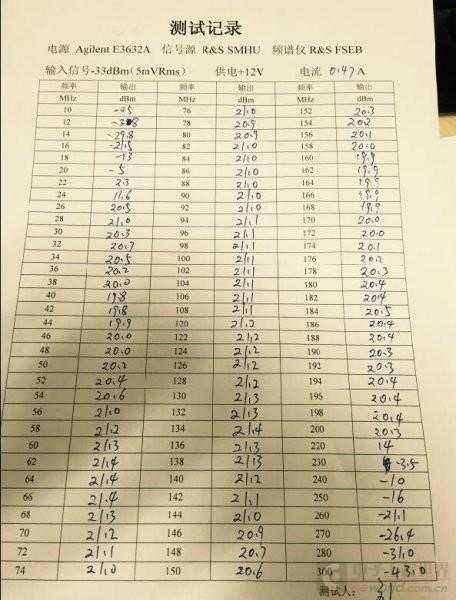 测试记录
电源 Agilent E3632A 信号源 R&S SMHU 频谱仪 R&S FSEB
输入信号-33dBm(5mVRms) 供电+12V 电流 0.47A
频率 输出 频率 输出 频率 输出
MHz dBm MHz dBm MHz dBm
10 76 21.0 152 20.3
12 78 20.9 154 20.2
14 -29.8 80 20.9 156 20.1
16 -21.5 82 21.0 158 20.0
18 -13 84 21.0 160 19.9
20 -5 86 21.0 162 19.9
22 2.3 88 21.0 164 19.9
24 11.6 90 21.0 166 19.9
26 20.5 92 21.0 168 19.9
28 21.0 94 21.1 170 20.0
30 20.3 96 21.1 172 20.0
32 20.7 98 21.1 174 20.1
34 20.5 100 21.1 176 20.2
36 20.2 102 21.1 178 20.3
38 20.0 104 21.1 180 20.4
40 19.8 106 21.1 182 20.4
42 19.8 108 21.1 184 20.5
44 19.9 120 21.2 186 20.4
46 20.0 122 21.2 188 20.4
48 20.0 124 21.2 190 20.3
50 20.2 126 21.2 192 20.3
52 20.4 128 21.2 194 20.4
54 20.6 130 21.3 195 20.4
56 21.0 132 21.3 198 20.4
58 21.2 134 21.4 200 20.3
60 21.3 136 21.3 220 14
62 21.4 138 21.3 230 -3.5
64 21.4 140 21.2 240 -10
66 21.4 142 21.1 250 -16
68 21.3 144 21.0 260 -21.1
70 21.2 146 20.9 270 -26.4
72 21.1 148 20.7 280 -31.0
74 21.0 150 20.6 300 -43.0
测试人: